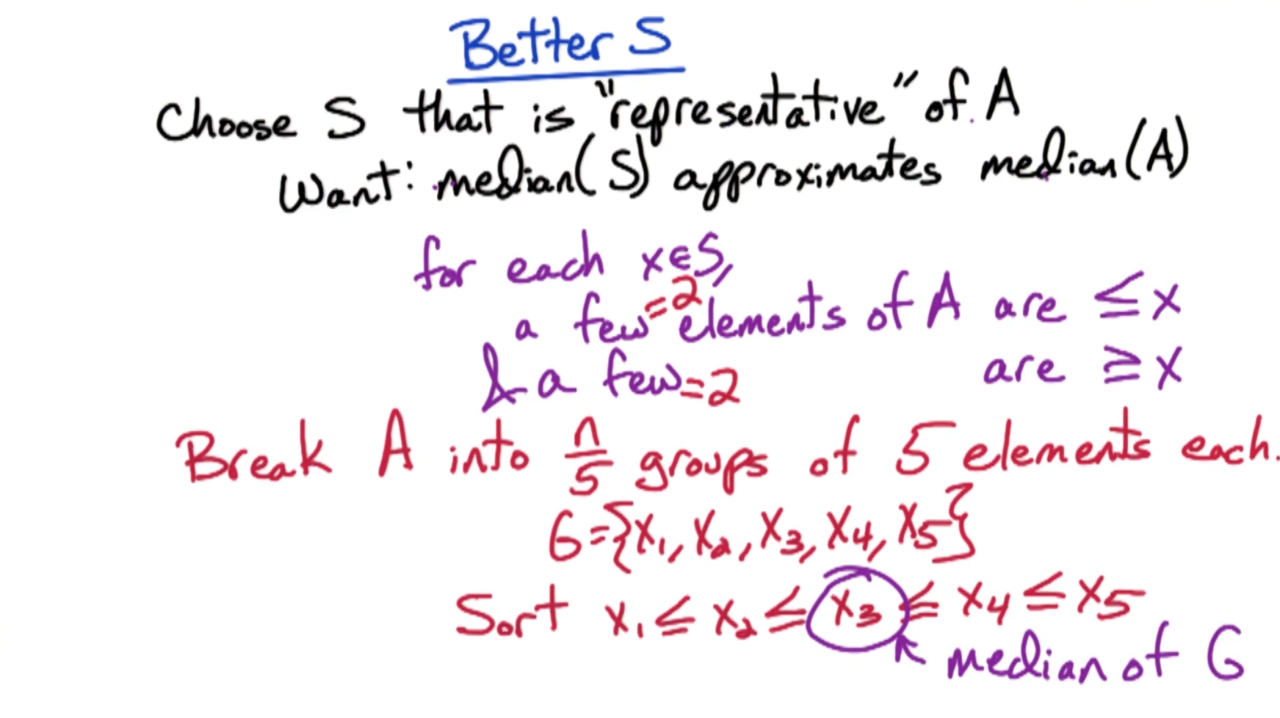 Better S
Choose S that is "representative" of A
Want: median(S) approximates median(A)
for each x∈S,
a few =2 elements of A are ≤x
& a few =2 are ≥x
Break A into n/5 groups of 5 elements each.
G={x₁, x₂, x₃, x₄, x₅}
Sort x₁ ≤ x₂ ≤ x₃ ≤ x₄ ≤ x₅
median of G